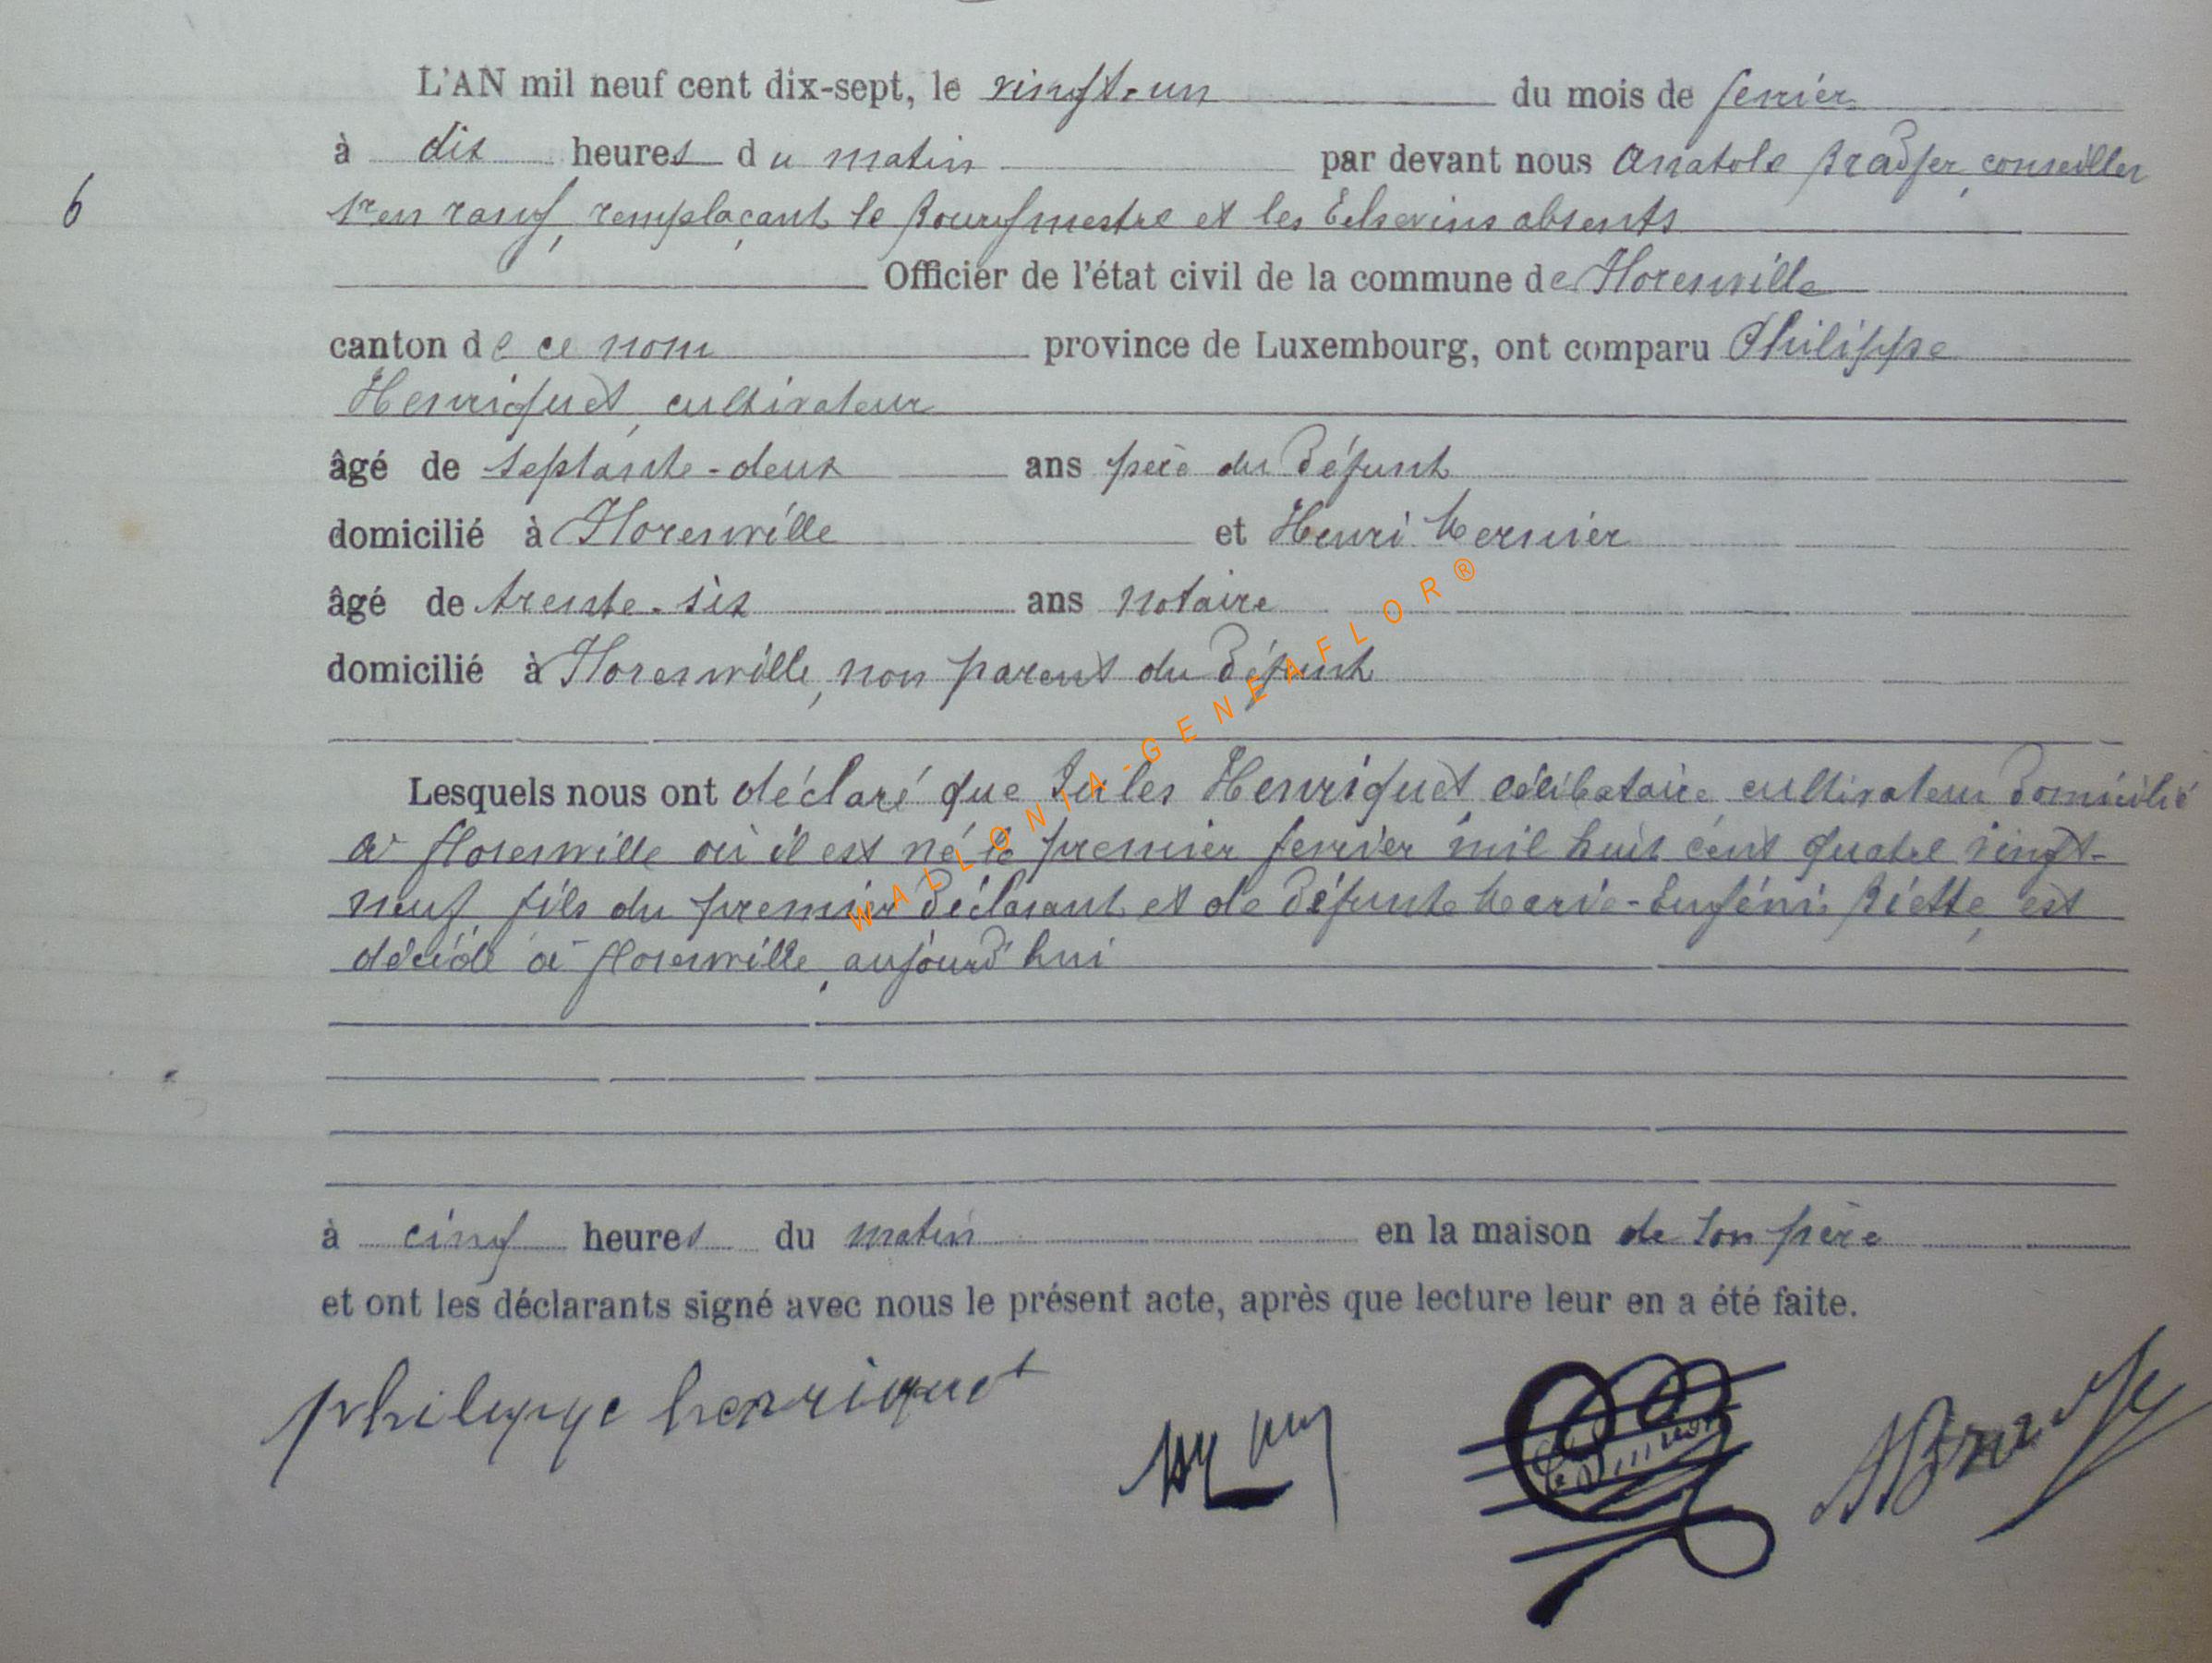 L'AN mil neuf cent dix-sept, le vingt-un du mois de fevrier
à dix heures du matin par devant nous Anatole Bradfer, conseiller
6
1er en rang, remplaçant le Bourgmestre et les Echevins absents
Officier de l'état civil de la commune de Florenville
canton de ce nom province de Luxembourg, ont comparu Philippe
Henriquet, cultivateur
âgé de septante-deux ans père du défunt
domicilié à Florenville et Henri Mernier
âgé de trente-six ans notaire
domicilié à Florenville, non parent du défunt
Lesquels nous ont déclaré que Jules Henriquet, célibataire, cultivateur domicilié
à Florenville où il est né le premier fevrier mil huit cent quatre vingt-
neuf, fils du premier déclarant et de défunte Marie-Eugénie Piette, est
décédé à Florenville, aujourd'hui
à cinq heures du matin en la maison de son père
et ont les déclarants signé avec nous le présent acte, après que lecture leur en a été faite.
philippe henriquet
WALLONIA-GENEAFLOR®